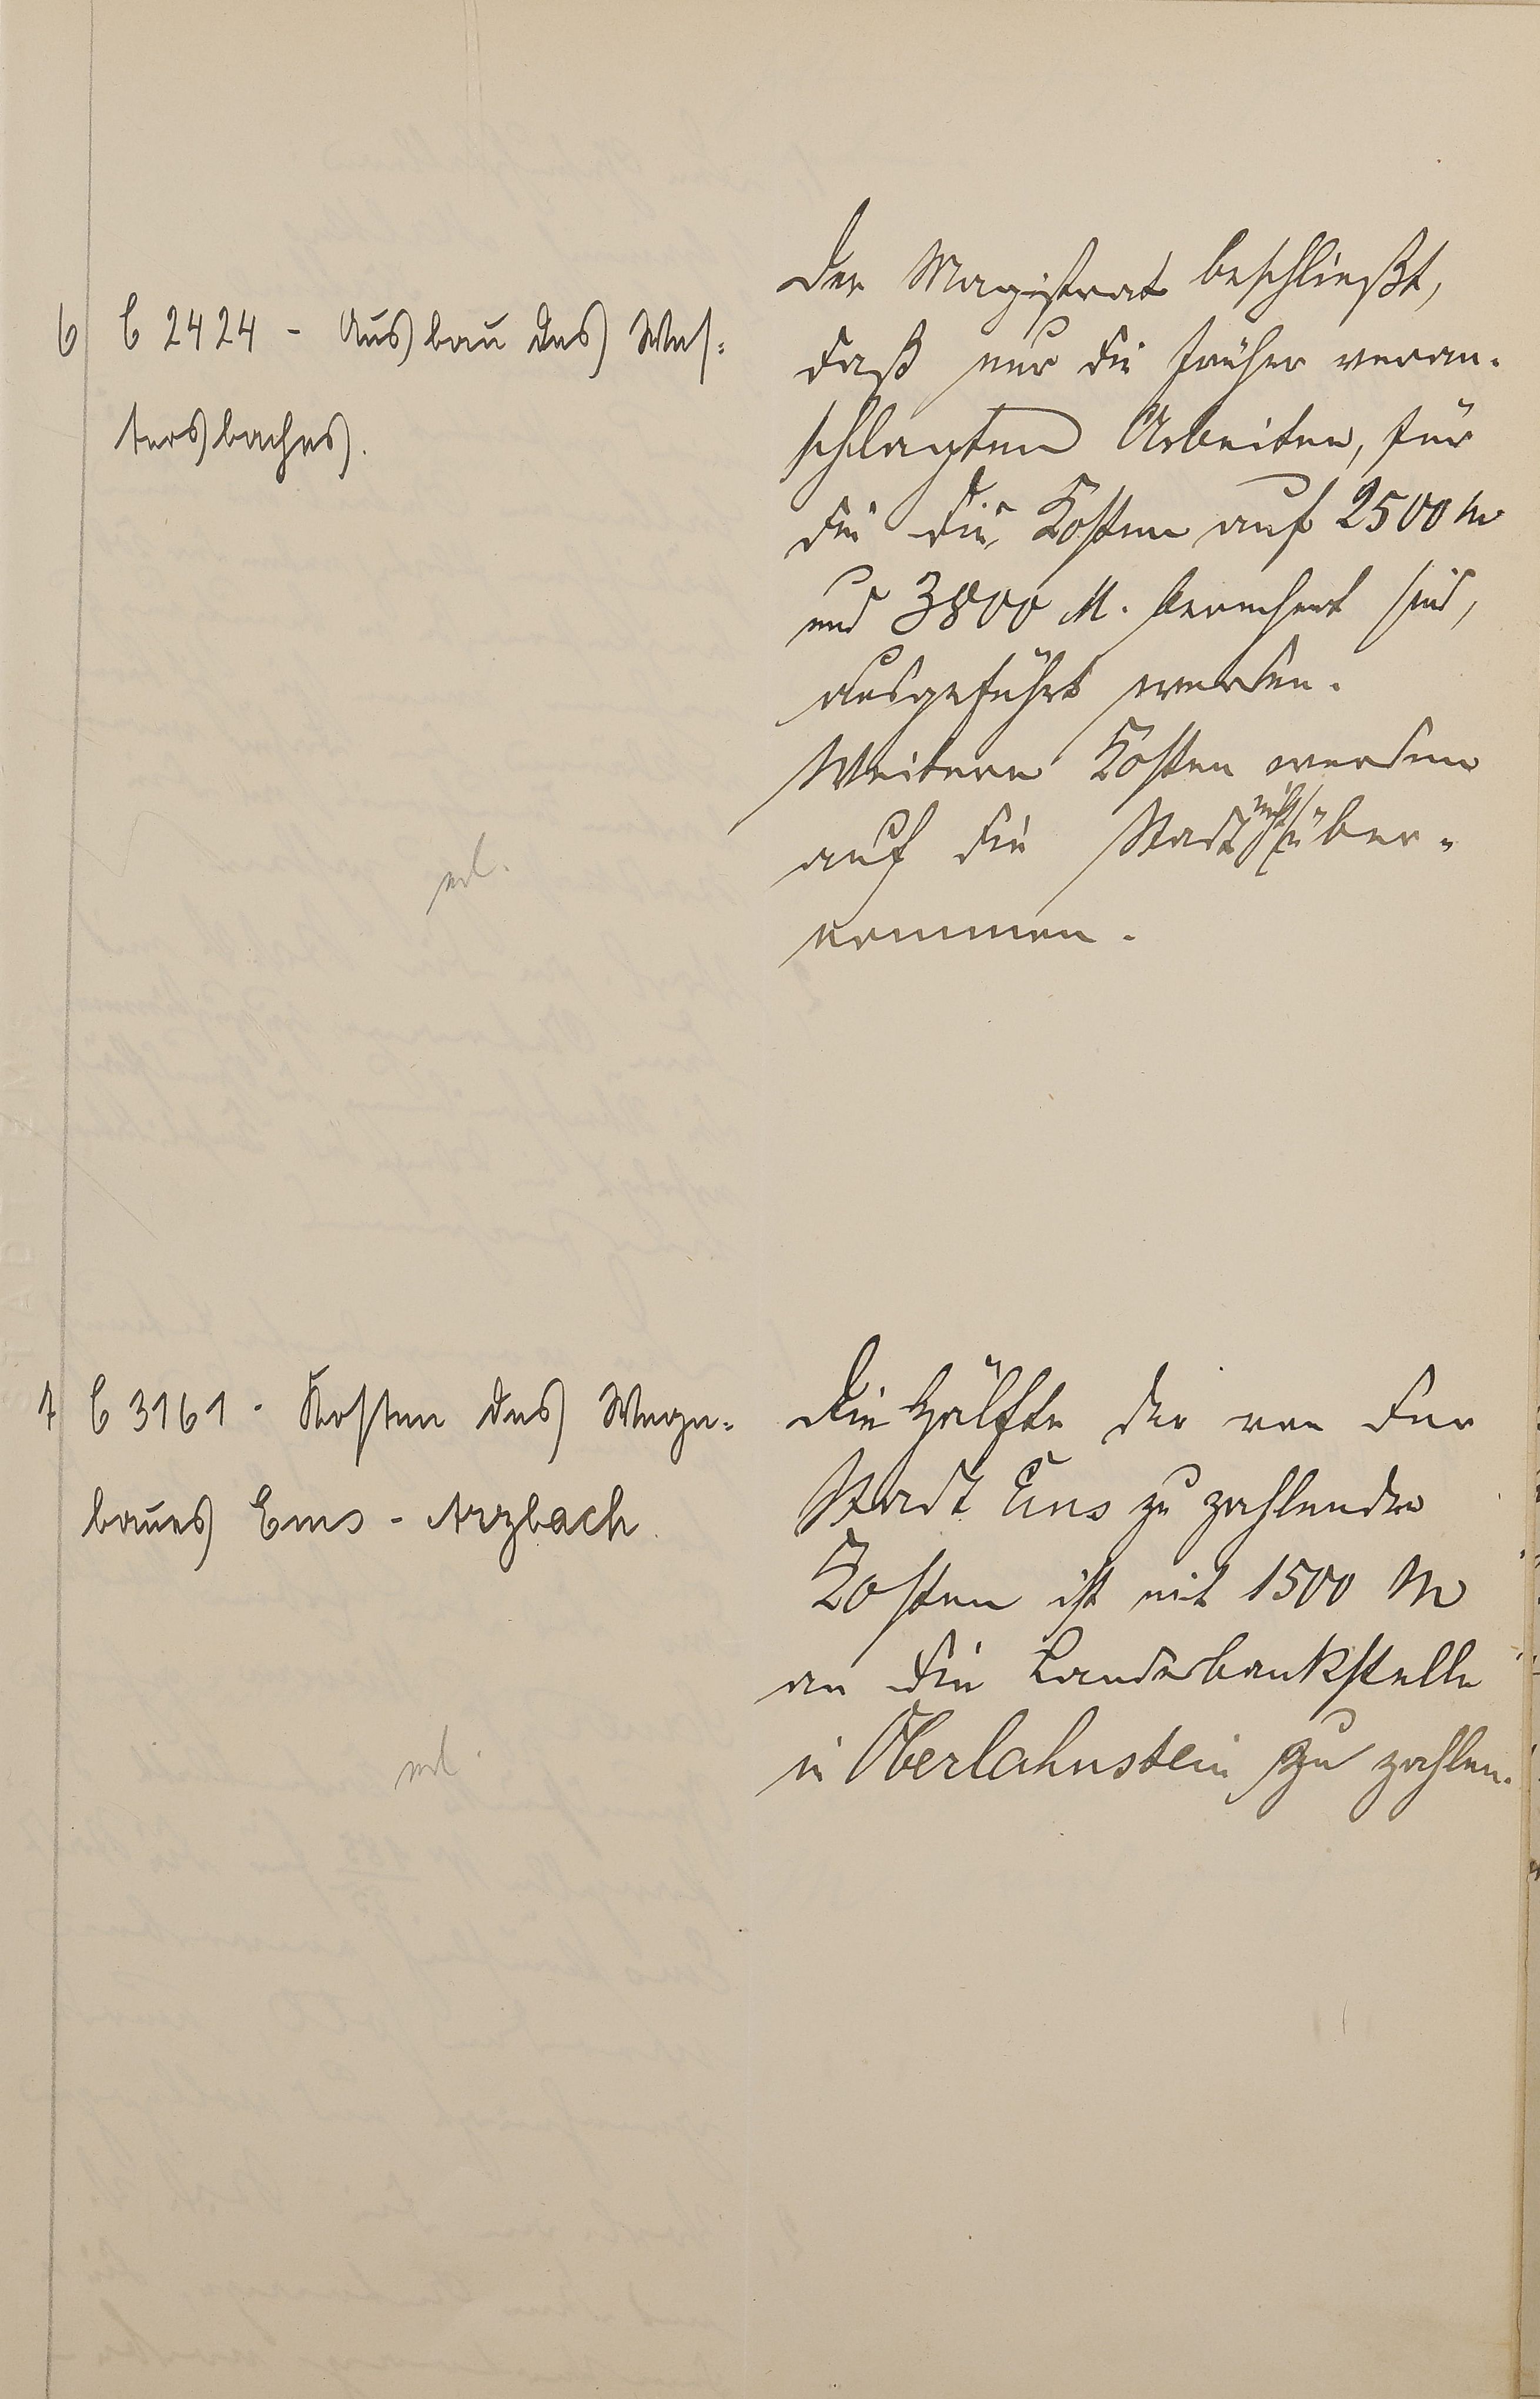 6 C 2424 - Ausbau des Wes-
tersbaches.
Der Magistrat beschließt,
daß nur die früher veran-
schlagten Arbeiten, für
die die Kosten auf 2500 M
und 3800 M. berechnet sind,
ausgeführt werden.
Weitere Kosten werden
auf die Stadt nicht über-
nommen.
erl.
7 C 3161 - Kosten des Wege-
baues Ems - Arzbach.
Die Hälfte der von der
Stadt Ems zu zahlenden
Kosten ist mit 1500 M
an die Landesbankstelle
in Oberlahnstein zu zahlen.
erl.